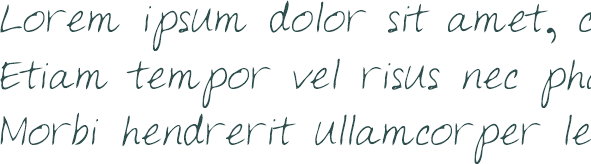 Lorem ipsum dolor sit amet, c
Etiam tempor vel risus nec pha
Morbi hendrerit ullamcorper le